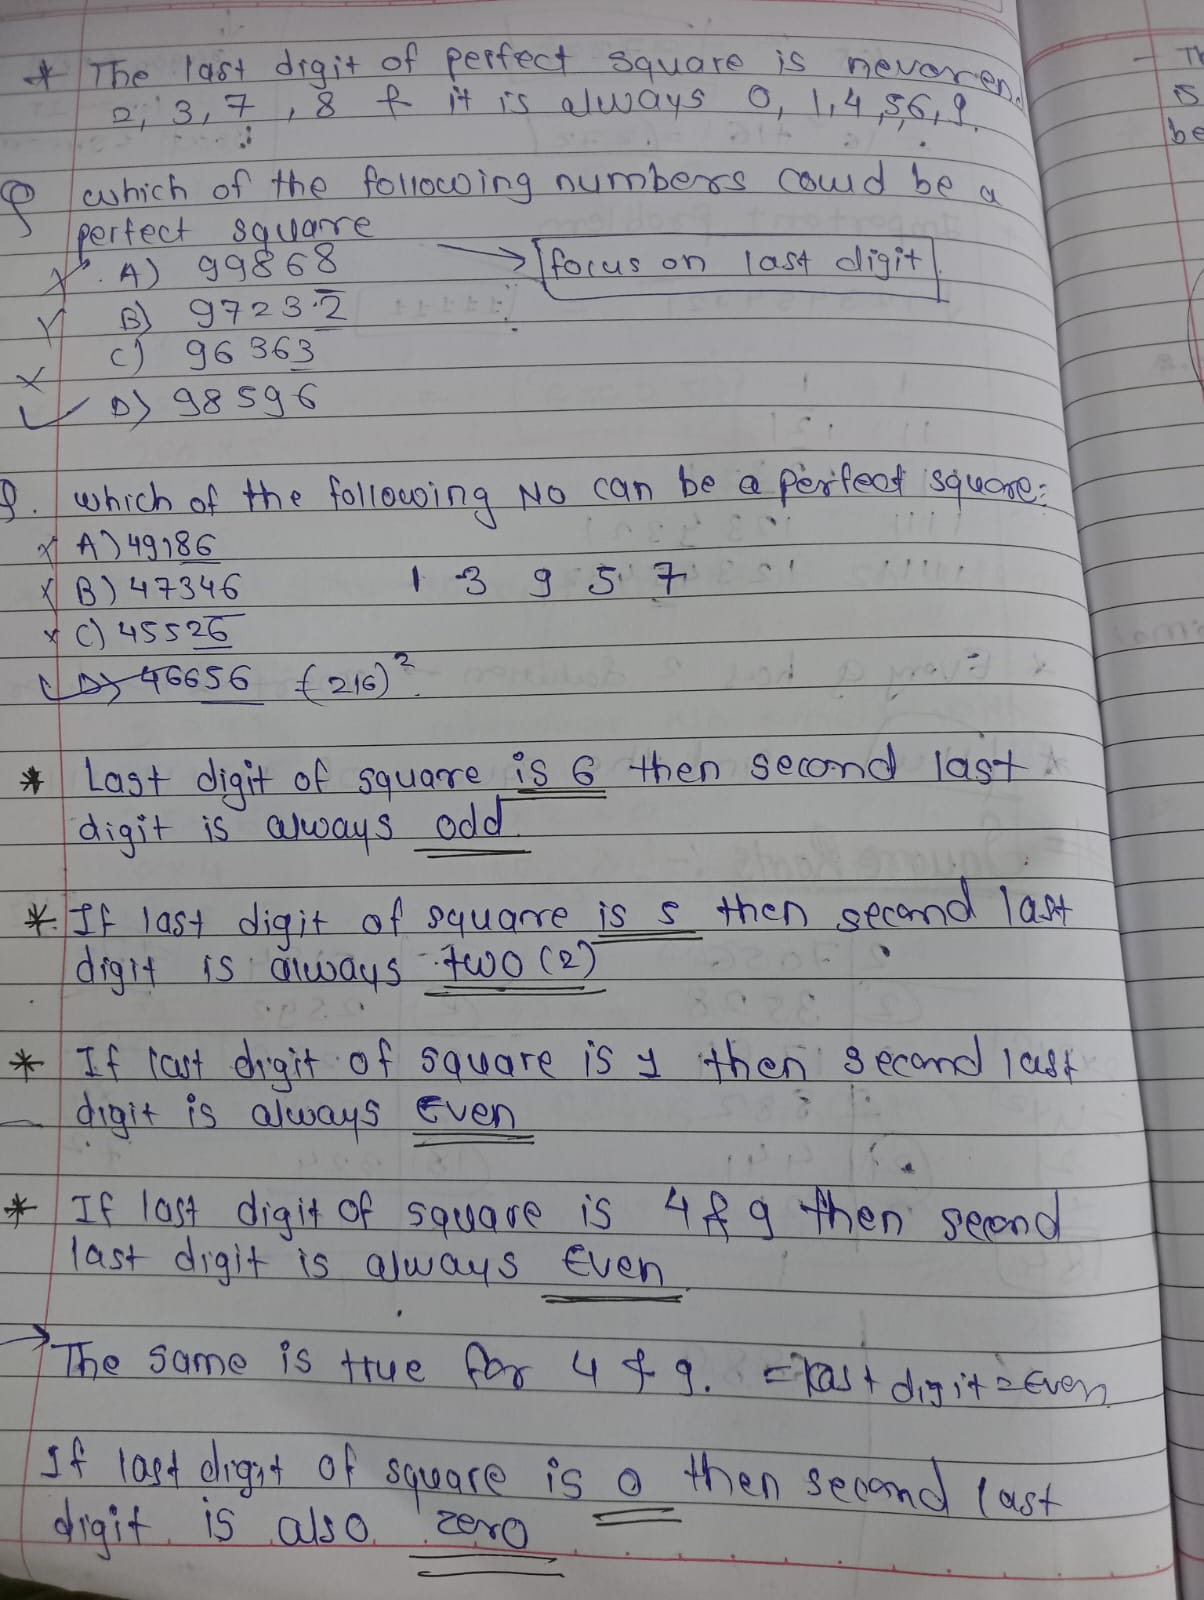 * The last digit of perfect square is never end
2, 3, 7, 8 & it is always 0, 1, 4, 5, 6, 9.
Q which of the following numbers could be a
perfect square
x A) 99868 → focus on last digit
x B) 97232
x C) 96363
✓ D) 98596
Q. which of the following No can be a perfect square:
x A) 49186
x B) 47346 1 3 9 5 7
x C) 45526
✓ D) 46656 (216)²
* Last digit of square is 6 then second last
digit is always odd
* If last digit of square is 5 then second last
digit is always two (2)
* If last digit of square is 1 then second last
digit is always Even
* If last digit of square is 4 & 9 then second
last digit is always Even
→ The same is true for 4 & 9. = last digit = Even
If last digit of square is 0 then second last
digit is also zero
Th
is
be